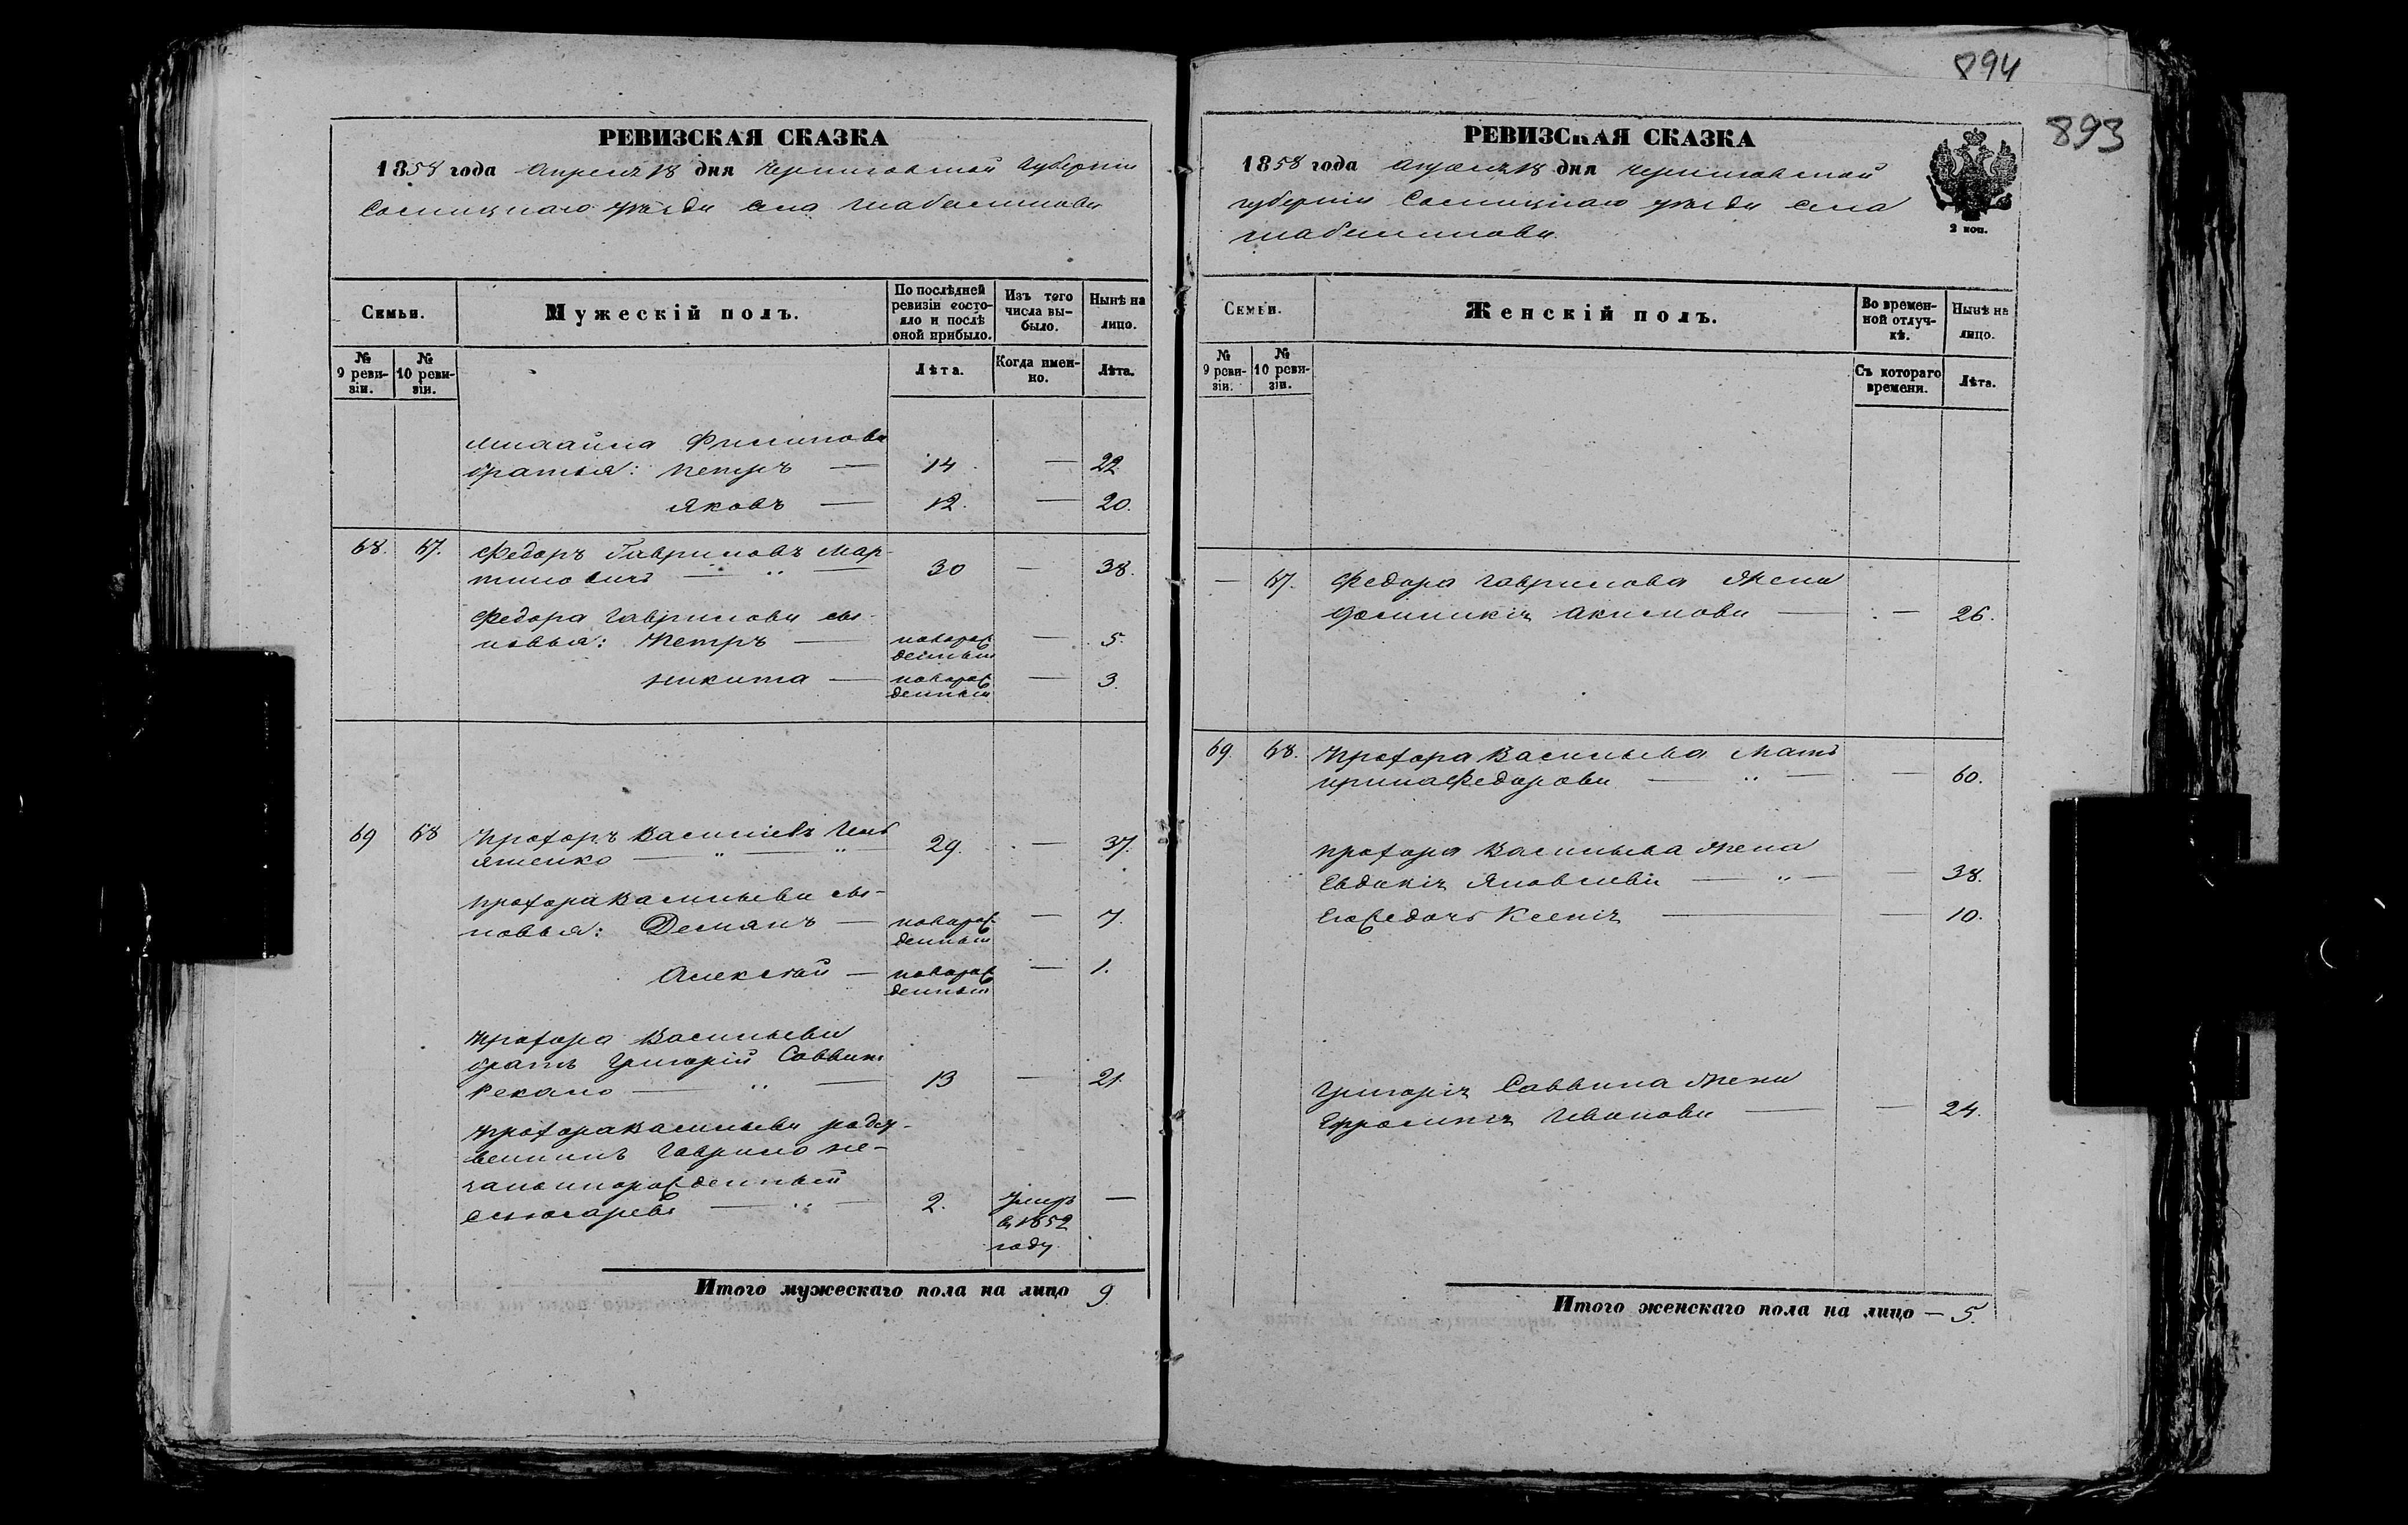 894
893
РЕВИЗСКАЯ СКАЗКА
1858 года Апреля 18 дня Черниговской Губернии
Сосницкаго уезда села Шабалинова
Семьи.
Мужескій полъ.
По послѣдней ревизіи состояло и послѣ оной прибыло.
Изъ того числа выбыло.
Нынѣ на лицо.
№ 9 ревизіи.
№ 10 ревизіи.
Лѣта.
Когда именно.
Лѣта.
Михайла Филипова
братья: Петръ — 14. — 22
Яковъ — 12. — 20.
68. 67. Федоръ Гавриловъ Мар-
тиновичъ — 30 — 38.
Федора Гаврилова сы-
новья: Петръ — новорож
денный — 5.
Никита — новорож
денный — 3.
69 68 Прохоръ Васильевъ
29. — 37.
Прохора Васильева сы-
новья: Демянъ — новорож
денный — 7.
Алексѣй — новорож
денный — 1.
Прохора Васильева
братъ Григорій Саввинъ
13 — 21.
Прохора Васильева родст
венникъ Гаврило не-
законнорожденный
2. Умеръ —
в 1852
году.
Итого мужескаго пола на лицо 9.
РЕВИЗСКАЯ СКАЗКА
1858 года Апреля 18 дня Черниговской
губернии Сосницкаго уезда села
Шабалинова
2 коп.
Семьи.
Женскій полъ.
Во временной отлучкѣ.
Нынѣ на лицо.
№ 9 ревизіи.
№ 10 ревизіи.
Съ котораго времени.
Лѣта.
— 67. Федора Гаврилова Жена
Акимова — — 26.
69. 68. Прохора Васильева Мать
Ирина Федорова — — 60.
Прохора Васильева Жена
Евдокія Яковлева — — 38.
Его же дочь Ксенія — — 10.
Григорія Саввина Жена
Ефросинія Иванова — — 24.
Итого женскаго пола на лицо — 5.